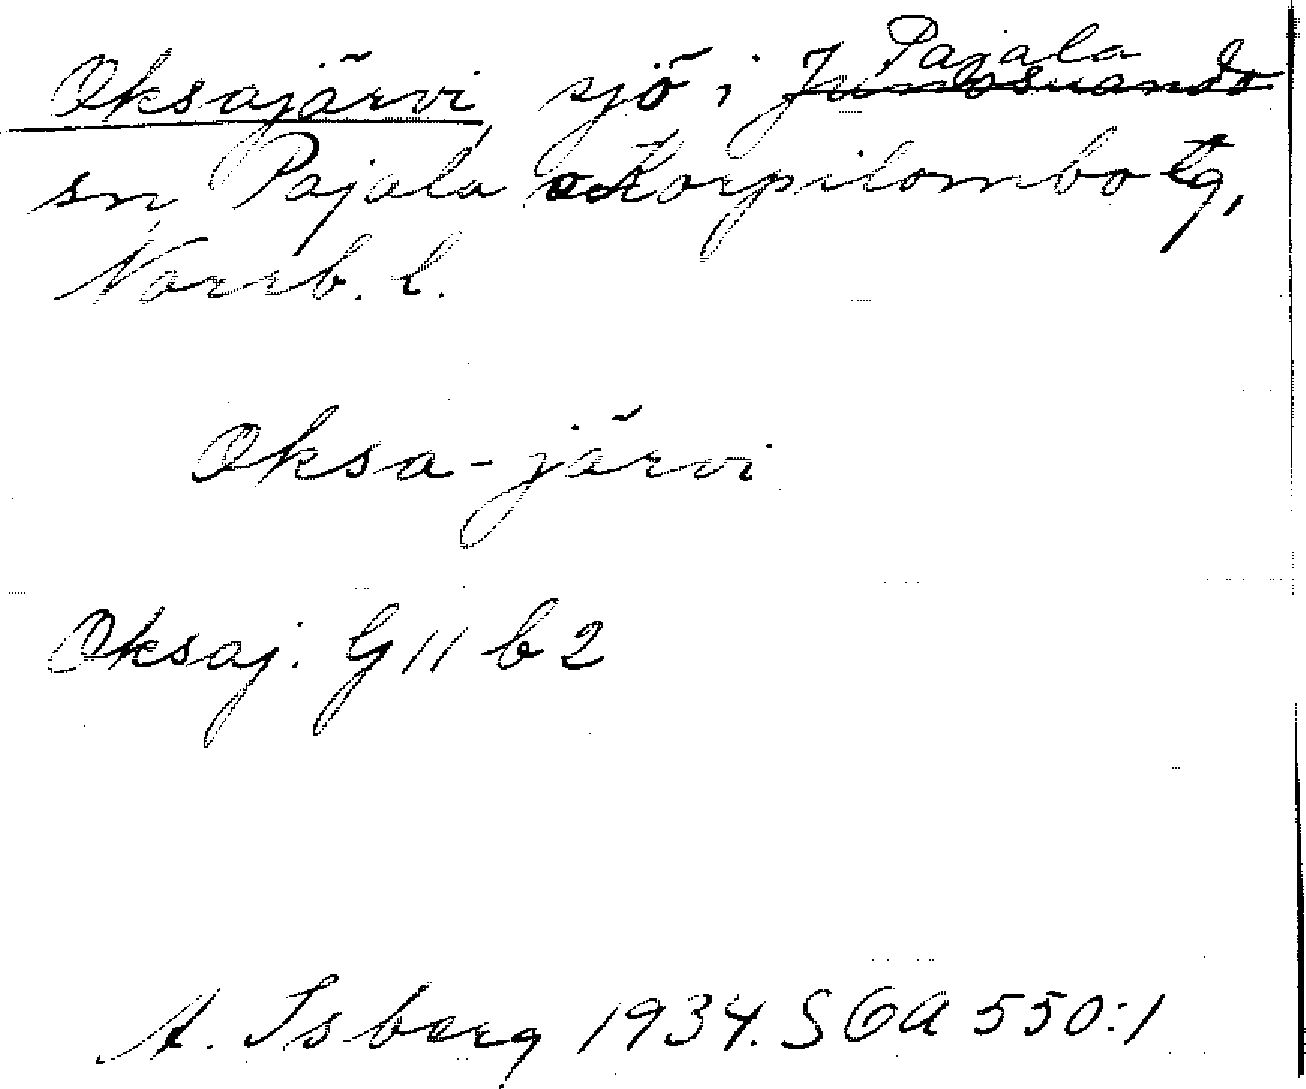 Oksajärvi sjö i Pajala Junosuando
sn Pajala o Korpilombo tg,
Norrb. l.
Oksa-järvi
Oksaj. G 11 b 2
A. Isberg 1934. SOA 550:1